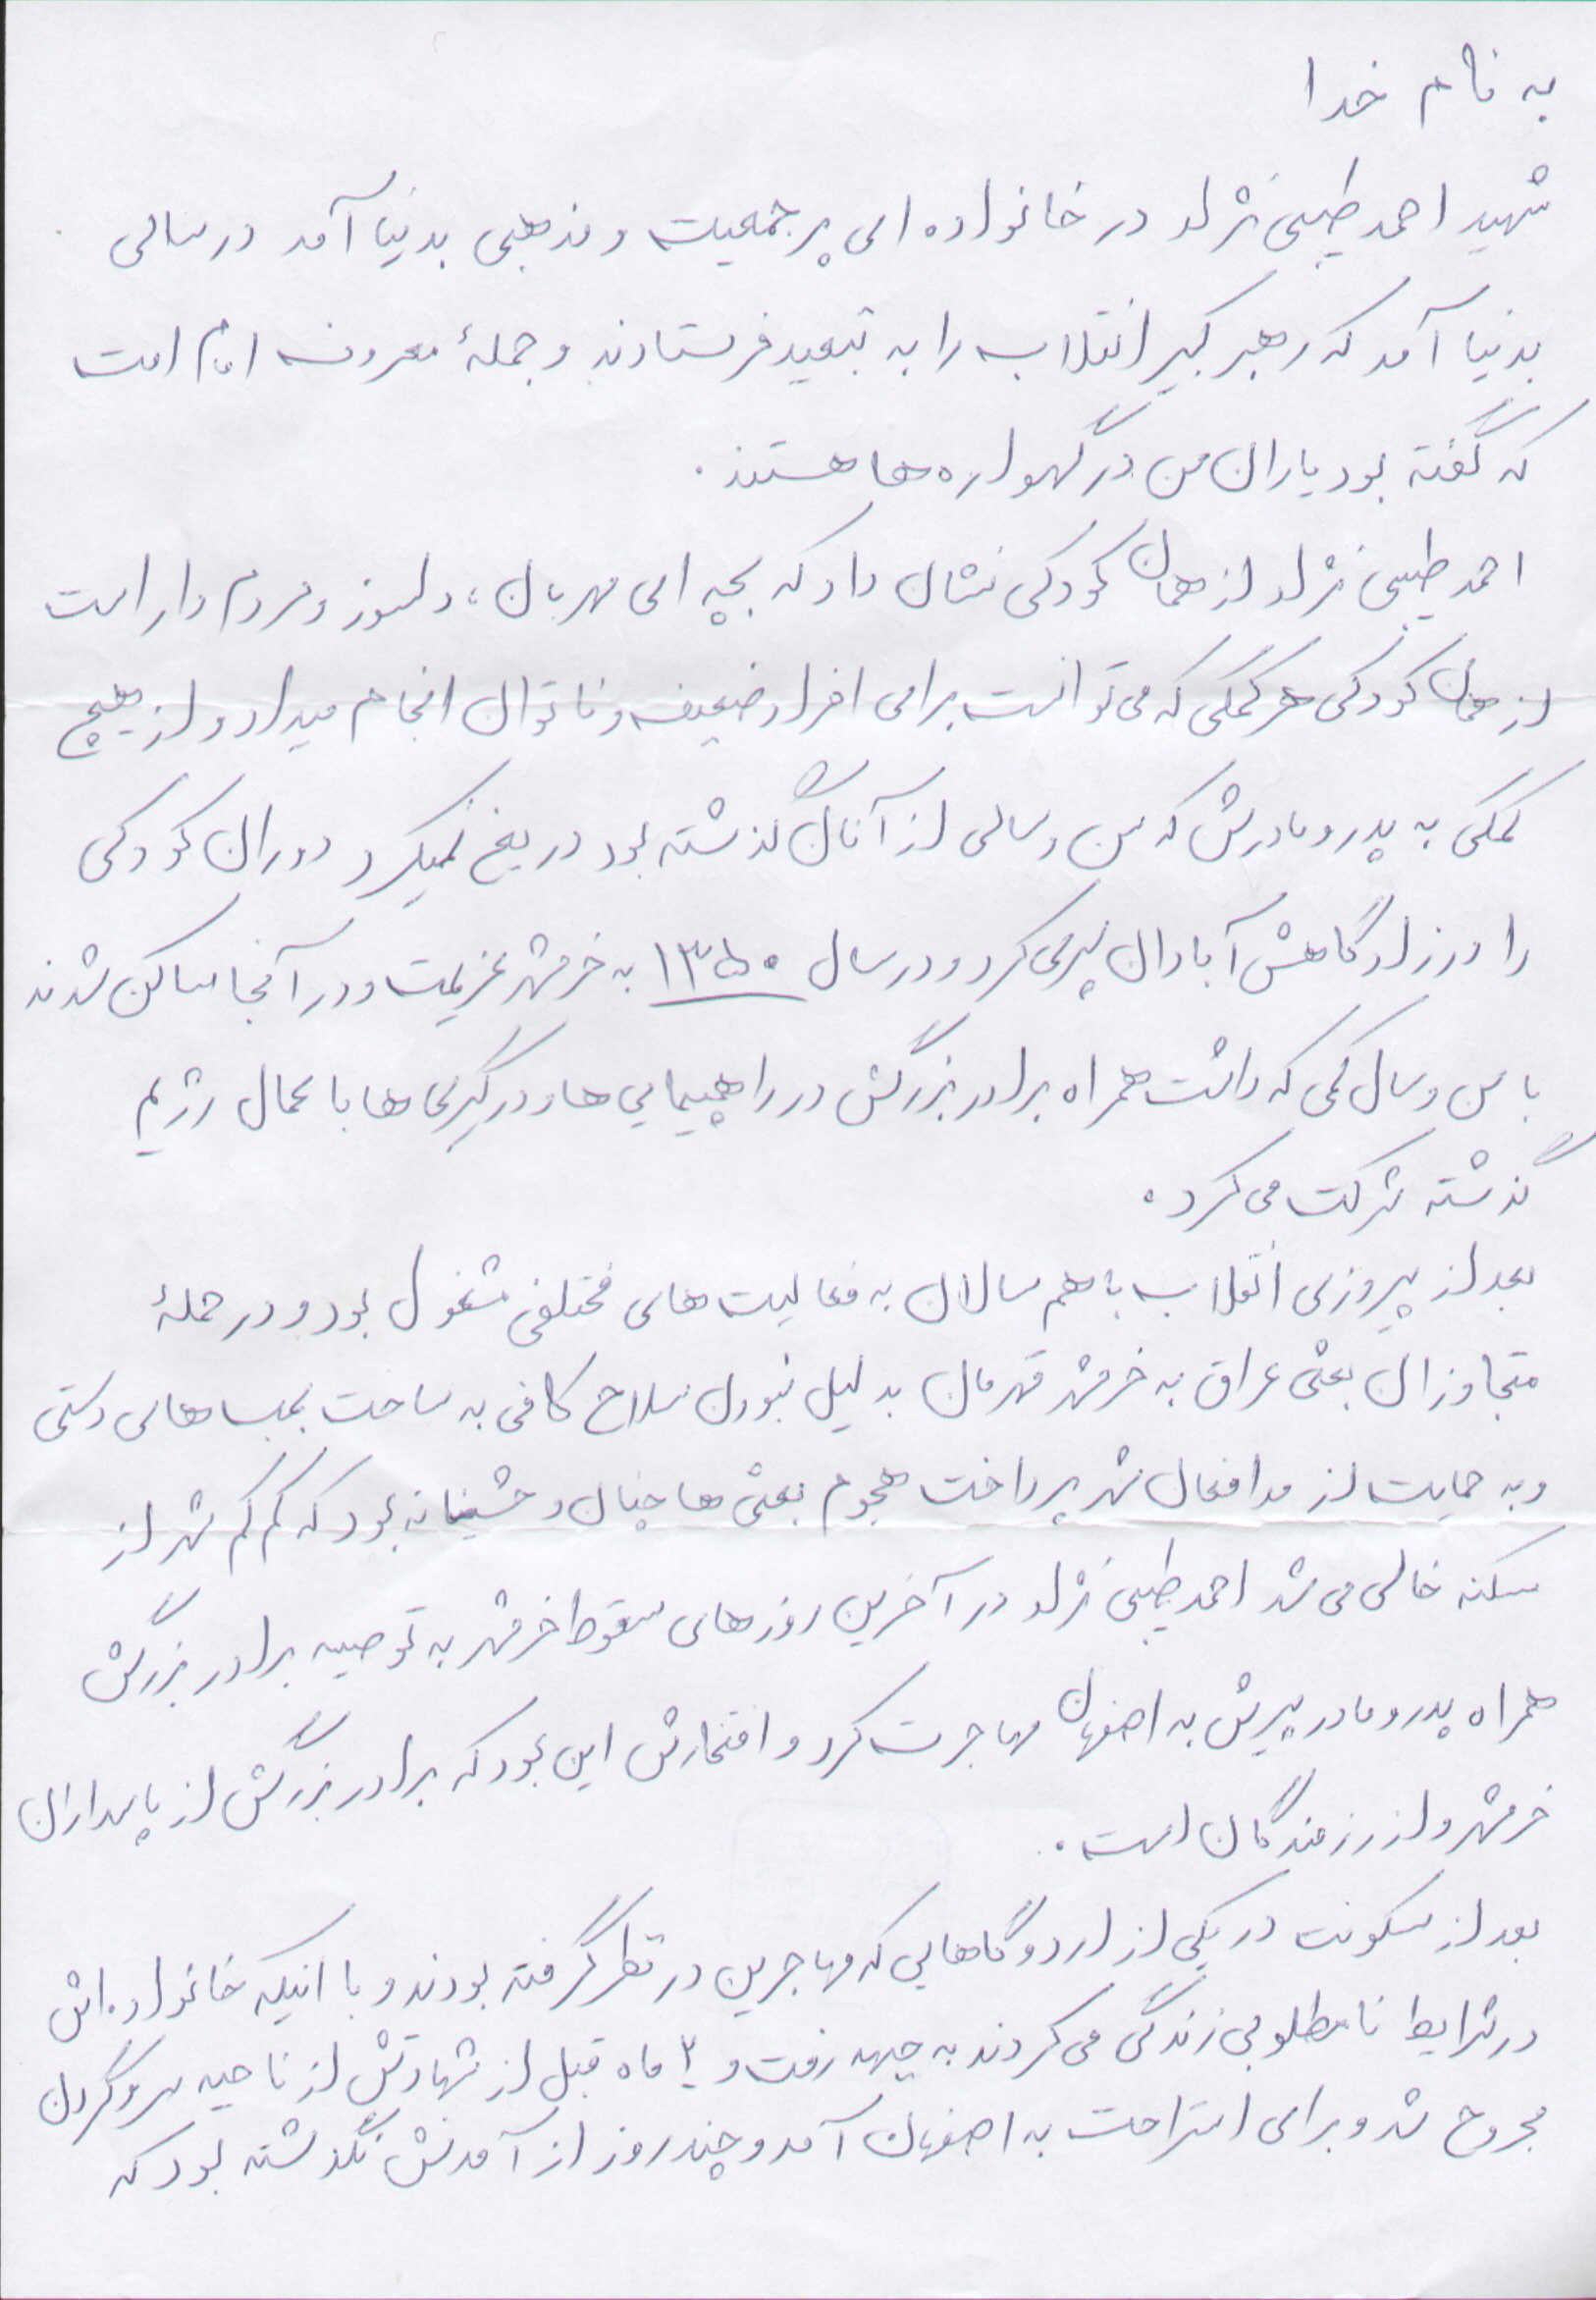 به نام خدا
شهید احمد طیبی نژاد در خانواده ای پر جمعیت و مذهبی بدنیا آمد در سالی
بدنیا آمد که رهبر کبیر انقلاب را به تبعید فرستادند و جملهٔ معروف امام است
که گفته بود یاران من در گهواره ها هستند.
احمد طیبی نژاد از همان کودکی نشان داد که بچه ای مهربان، دلسوز و مردم دار است
از همان کودکی هر کمکی که می توانست برای افراد ضعیف و ناتوان انجام میداد و از هیچ
کمکی به پدر و مادرش که سن و سالی از آنان گذشته بود دریغ نمیکرد دوران کودکی
را در زادگاهش آبادان سپری کرد و در سال ۱۳۵۰ به خرمشهر عزیمت و در آنجا ساکن شدند
با سن و سال کمی که داشت همراه برادر بزرگش در راهپیمایی ها و درگیری ها با عمال رژیم
گذشته شرکت می کرد.
بعد از پیروزی انقلاب با هم سالان به فعالیت های مختلفی مشغول بود و در حملهٔ
متجاوزان بعثی عراق به خرمشهر قهرمان بدلیل نبودن سلاح کافی به ساخت بمب های دستی
و به حمایت از مدافعان شهر پرداخت هجوم بعثی ها چنان وحشیانه بود که کم کم شهر از
سکنه خالی می شد احمد طیبی نژاد در آخرین روزهای سقوط خرمشهر به توصیه برادر بزرگش
همراه پدر و مادر پیرش به اصفهان مهاجرت کرد و افتخارش این بود که برادر بزرگش از پاسداران
خرمشهر و از رزمندگان است.
بعد از سکونت در یکی از اردوگاهایی که مهاجرین در نظر گرفته بودند و با اینکه خانواده اش
در شرایط نامطلوبی زندگی می کردند به جبهه رفت و ۲ ماه قبل از شهادتش از ناحیه سر و گردن
مجروح شد و برای استراحت به اصفهان آمد و چند روز از آمدنش نگذشته بود که